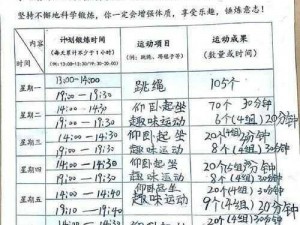 坚持不懈地科学锻炼,你一定会增强体质,享受乐趣,锤炼意志!
内容 时间 计划锻炼时间 运动项目 运动成果
(每天累计不少于1小时) (例:跳绳、排毽子等) (数量或时间)
(例:13:00-13:30/19:30-20:00)
星期一 13:00-14:00 跳绳 105个
19:00-19:30
星期二 14:00-14:30 仰卧起坐 70个 30分钟
19:00-19:30 趣味运动 6个(4组) 20分钟
星期三 14:00-14:30 仰卧起坐 20个(4组) 30分钟
19:00-19:30 趣味运动 8个(4组) 20分钟
星期四 14:00-14:30 仰卧起坐 20个(5组) 30分钟
19:00-19:30 趣味运动 8个(4组) 30分钟
星期五 14:00-14:40 仰卧起坐 20个(4组) 30分钟
19:10-19:40 趣味运动 9个(4组) 20分钟
14:00-14:30 仰卧起坐 20个(4组) 30分钟